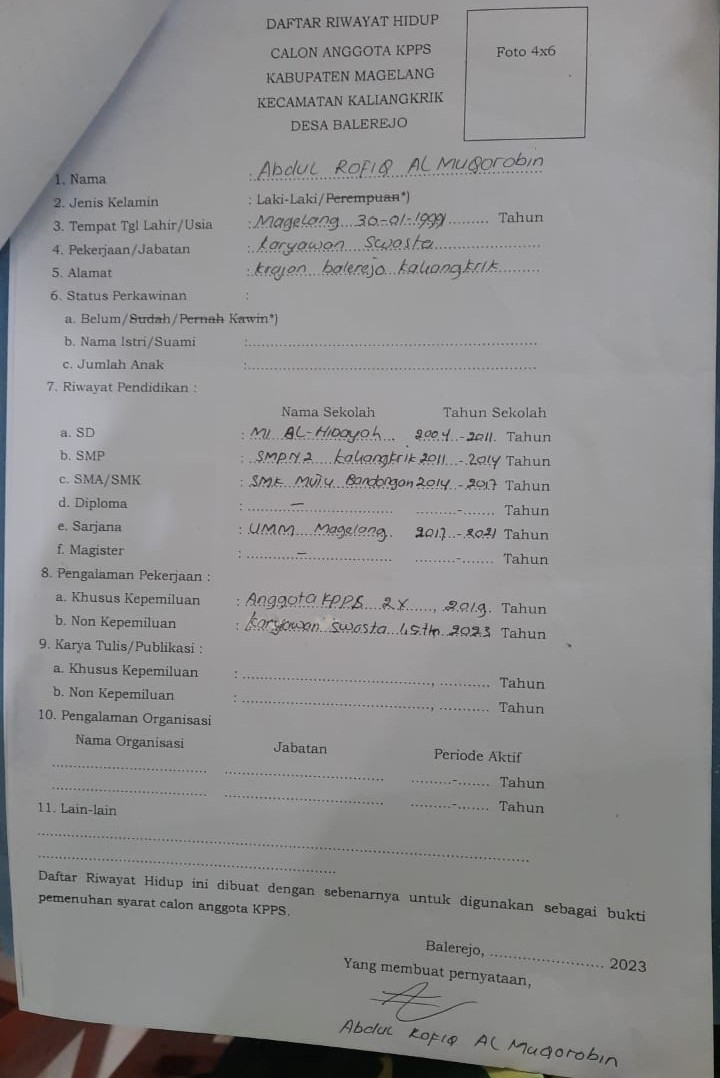 DAFTAR RIWAYAT HIDUP
CALON ANGGOTA KPPS
KABUPATEN MAGELANG
KECAMATAN KALIANGKRIK
DESA BALEREJO
Foto 4x6
1. Nama : Abdul ROFIQ AL MUQOrobin
2. Jenis Kelamin : Laki-Laki/Perempuan*)
3. Tempat Tgl Lahir/Usia : Magelang 30-01-1999 ......... Tahun
4. Pekerjaan/Jabatan : karyawan swasta
5. Alamat : krajan balerejo kaliangkrik
6. Status Perkawinan :
a. Belum/Sudah/Pernah Kawin*)
b. Nama Istri/Suami :
c. Jumlah Anak :
7. Riwayat Pendidikan :
Nama Sekolah Tahun Sekolah
a. SD : MI AL-Hidayah 2004 - 2011 Tahun
b. SMP : SMPN 2 kaliangkrik 2011 - 2014 Tahun
c. SMA/SMK : SMK MUI4 Bandongan 2014 - 2017 Tahun
d. Diploma : - ......-...... Tahun
e. Sarjana : UMM Magelang 2017 - 2021 Tahun
f. Magister : - ......-...... Tahun
8. Pengalaman Pekerjaan :
a. Khusus Kepemiluan : Anggota KPPS 2X ....., 2019 Tahun
b. Non Kepemiluan : karyawan swasta 1,5 th 2023 Tahun
9. Karya Tulis/Publikasi :
a. Khusus Kepemiluan : ......, ...... Tahun
b. Non Kepemiluan : ......, ...... Tahun
10. Pengalaman Organisasi
Nama Organisasi Jabatan Periode Aktif
......-...... Tahun
......-...... Tahun
11. Lain-lain
Daftar Riwayat Hidup ini dibuat dengan sebenarnya untuk digunakan sebagai bukti
pemenuhan syarat calon anggota KPPS.
Balerejo, ...................... 2023
Yang membuat pernyataan,
Abdul ROFIQ AL Muqorobin